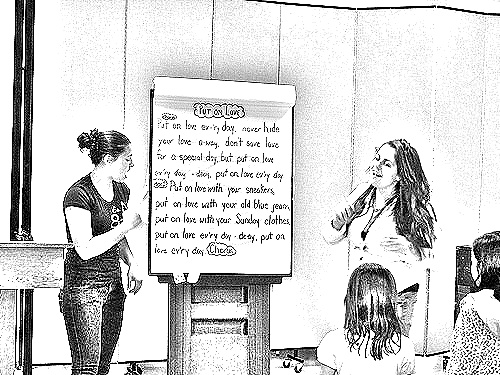 PUT ON LOVE
Put on love ev'ry day, never hide
your love a-way, don't save love
for a special day, but put on love
ev'ry day - deay, put on love ev'ry day
Put on love with your sneakers,
put on love with your old blue jeans,
put on love with your Sunday clothes,
put on love ev'ry day - deay, put on
love ev'ry day. Chorus